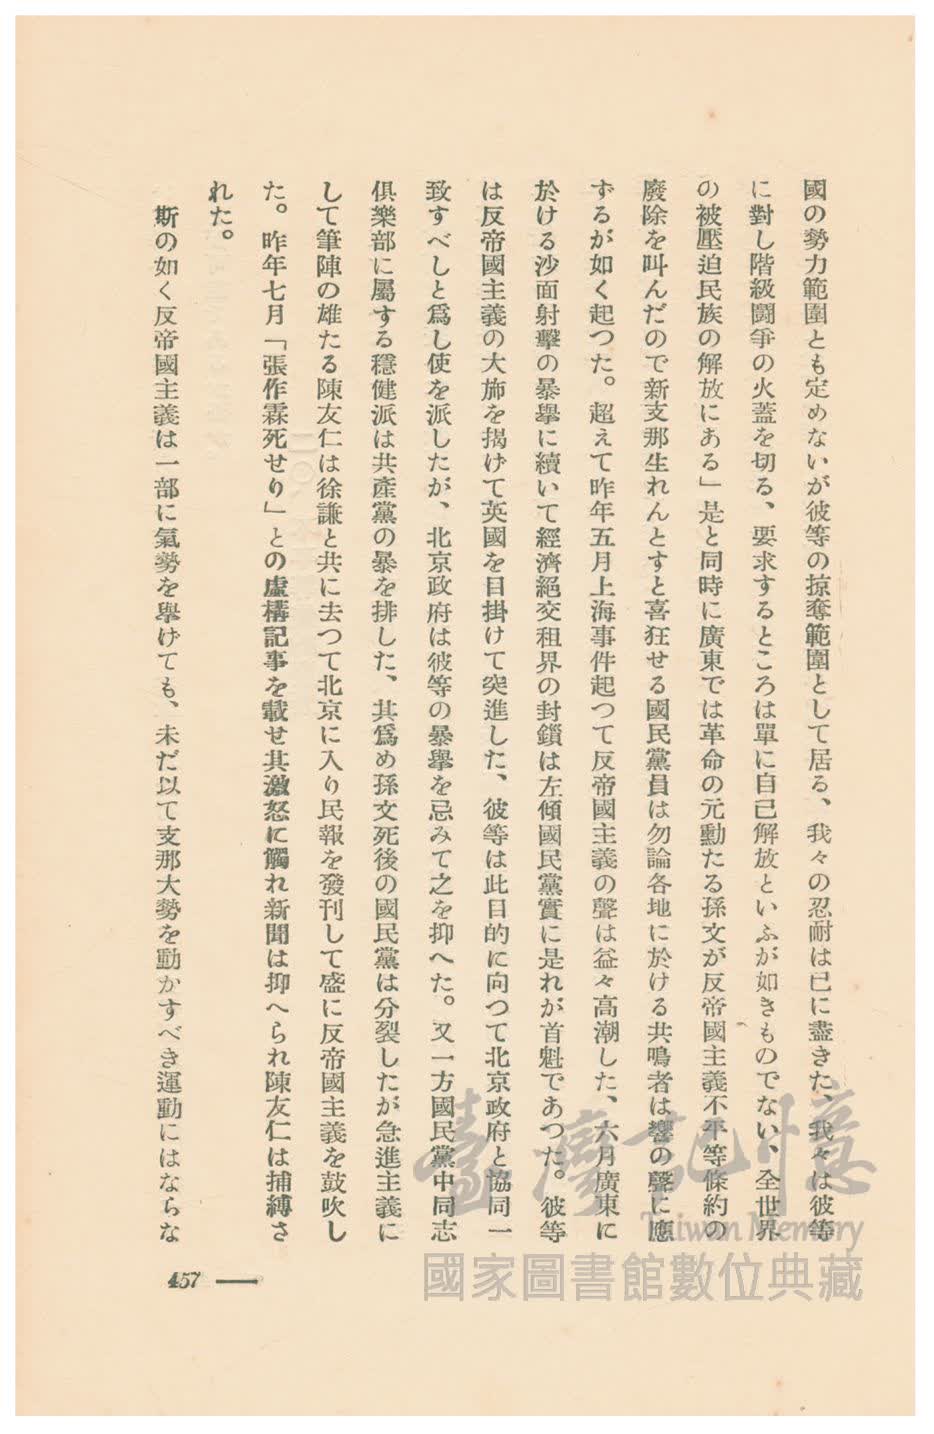 國の勢力範圍とも定めないが彼等の掠奪範圍として居る、我々の忍耐は已に盡きた、我々は彼等
に對し階級鬪爭の火蓋を切る、要求するところは單に自己解放といふが如きものでない、全世界
の被壓迫民族の解放にある」是と同時に廣東では革命の元勳たる孫文が反帝國主義不平等條約の
廢除を叫んだので新支那生れんとすと喜狂せる國民黨員は勿論各地に於ける共鳴者は響の聲に應
ずるが如く起つた。超えて昨年五月上海事件起つて反帝國主義の聲は益々高潮した、六月廣東に
於ける沙面射擊の暴擧に續いて經濟絕交租界の封鎖は左傾國民黨實に是れが首魁であつた。彼等
は反帝國主義の大旆を揭げて英國を目掛けて突進した、彼等は此目的に向つて北京政府と協同一
致すべしと爲し使を派したが、北京政府は彼等の暴擧を忌みて之を抑へた。又一方國民黨中同志
俱樂部に屬する穩健派は共產黨の暴を排した、其爲め孫文死後の國民黨は分裂したが急進主義に
して筆陣の雄たる陳友仁は徐謙と共に去つて北京に入り民報を發刊して盛に反帝國主義を鼓吹し
た。昨年七月「張作霖死せり」との虛構記事を載せ其激怒に觸れ新聞は抑へられ陳友仁は捕縛さ
れた。
斯の如く反帝國主義は一部に氣勢を擧げても、未だ以て支那大勢を動かすべき運動にはならな
457
臺灣記憶
Taiwan Memory
國家圖書館數位典藏